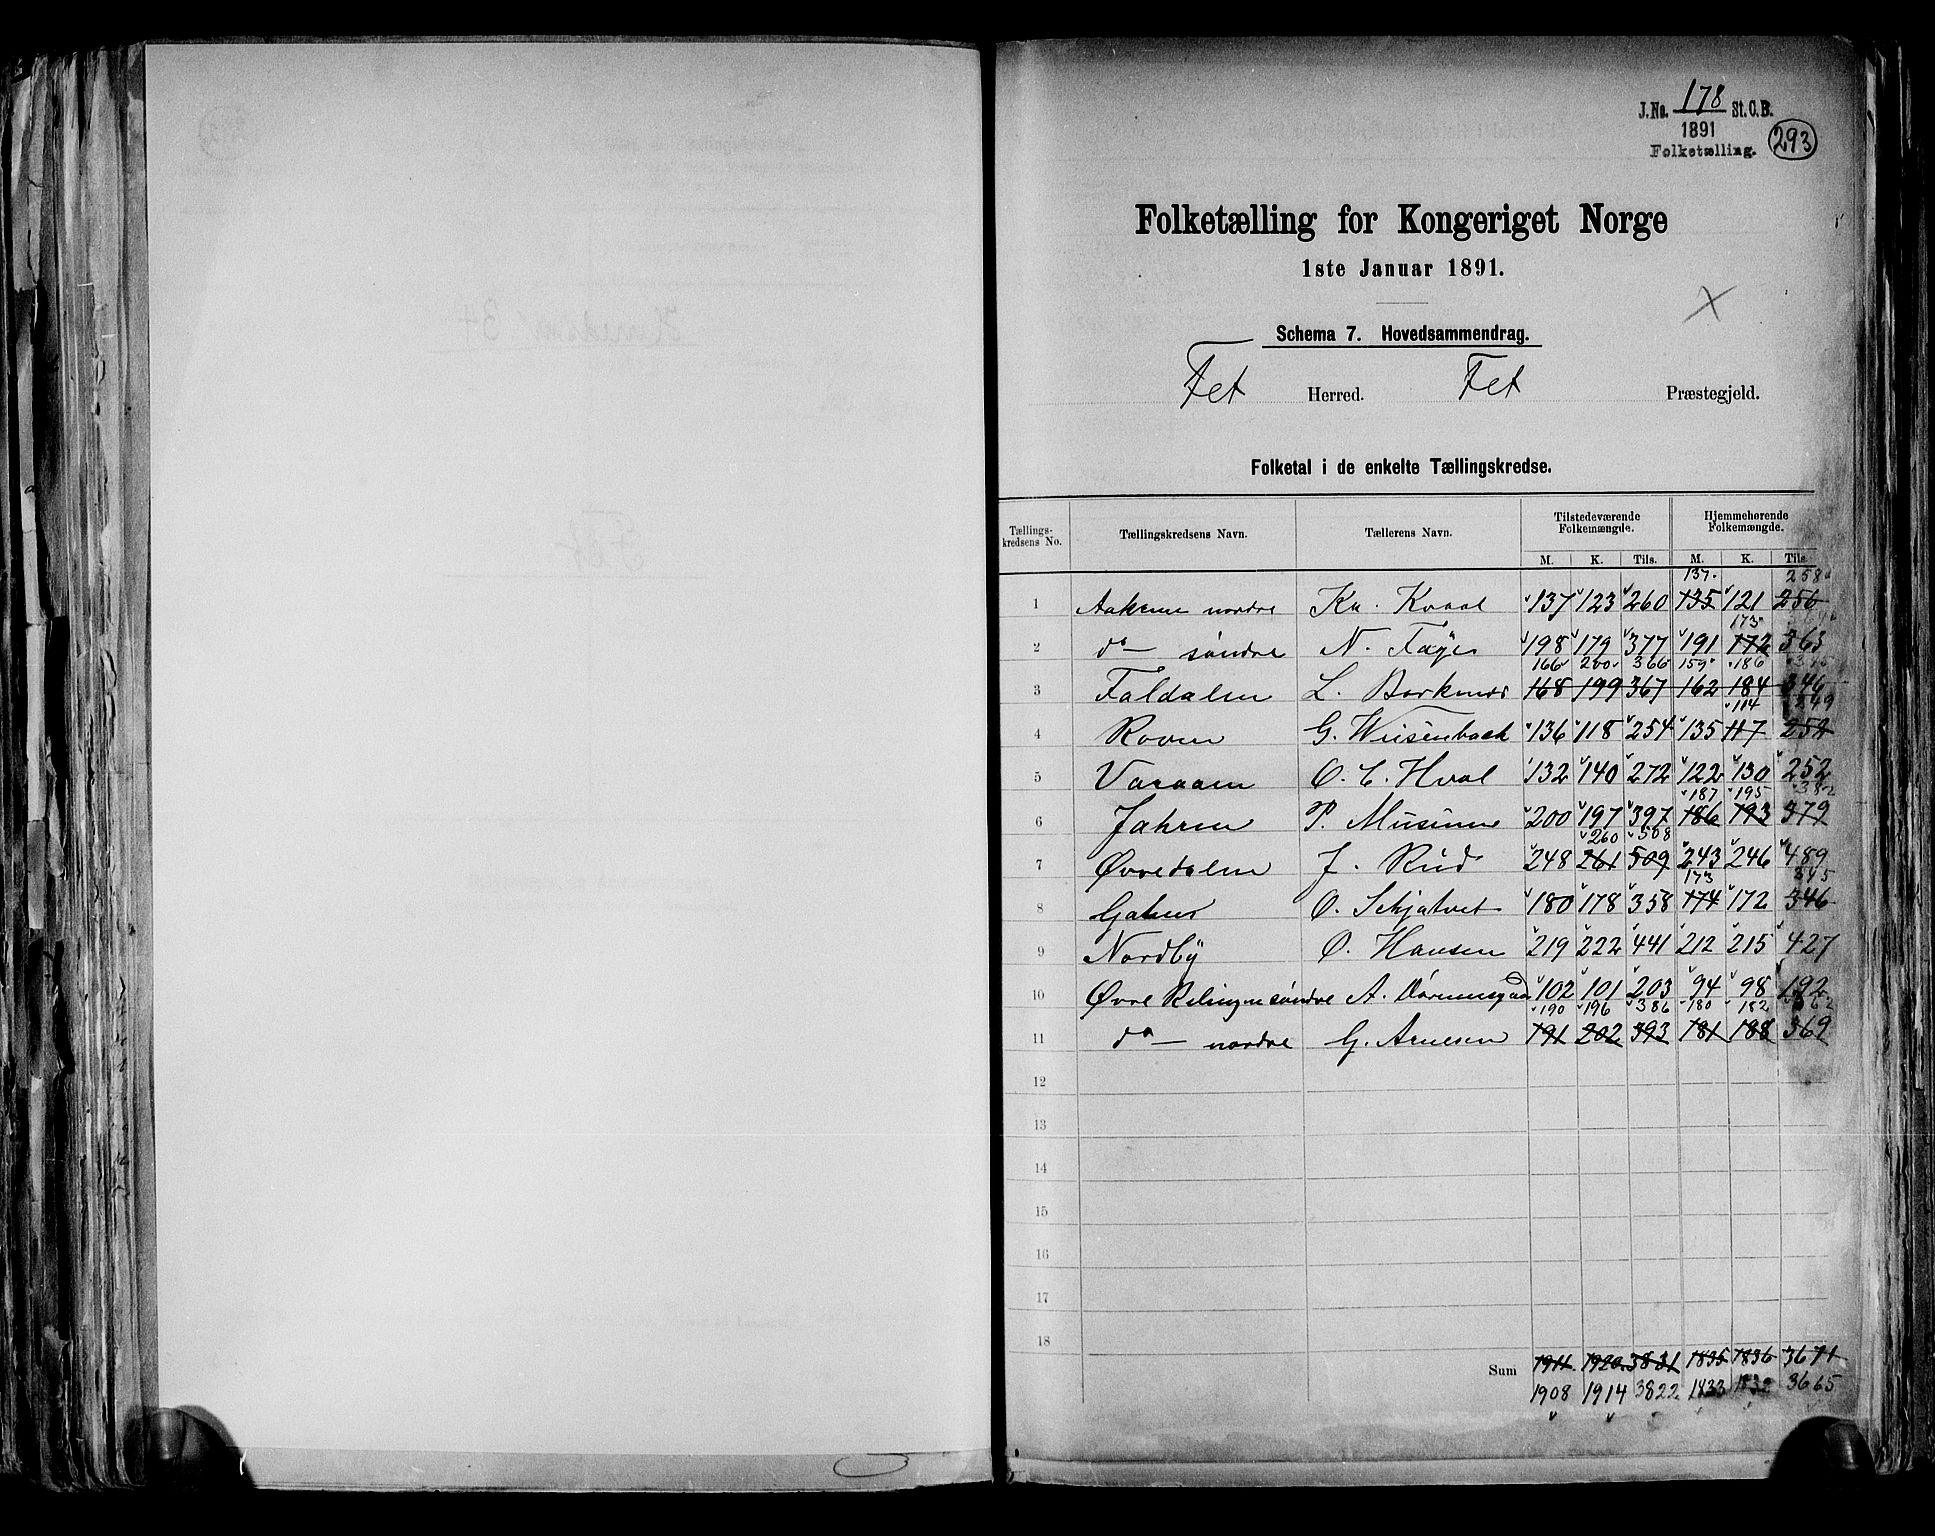 J.No. 178 St.C.B.
1891
Folketælling. 293
Folketælling for Kongeriget Norge
1ste Januar 1891.
X
Schema 7. Hovedsammendrag.
Fet Herred. Fet Præstegjeld.
Folketal i de enkelte Tællingskredse.
Tællings-kredsens No. Tællingskredsens Navn. Tællerens Navn. Tilstedeværende Folkemængde. Hjemmehørende Folkemængde.
M. K. Tils. M. K. Tils.
137 258
1 Aakrene nordre Kr. Kvaal 137 123 260 135 121 256
173
2 do — søndre N. Faye 198 179 377 191 172 363
166 200 366 159 186 345
3 Faldalen L. Borknes 168 199 367 162 184 346
114 249
4 Roven G. Weisenback 136 118 254 135 117 252
5 Varaaen O. C. Hval 132 140 272 122 130 252
187 195 382
6 Jahren P. 200 197 397 186 193 379
260 508
7 Øvredalen J. Rud 248 261 509 243 246 489
173 345
8 Gahus O. Schjatvet 180 178 358 174 172 346
9 Nordby O. Hansen 219 222 441 212 215 427
10 Øvre Relingen søndre A. 102 101 203 94 98 192
190 196 386 180 182 362
11 do — nordre G. Arnesen 191 202 393 181 188 369
12
13
14
15
16
17
18
Sum 1911 1920 3831 1835 1836 3671
1908 1914 3822 1833 1832 3665